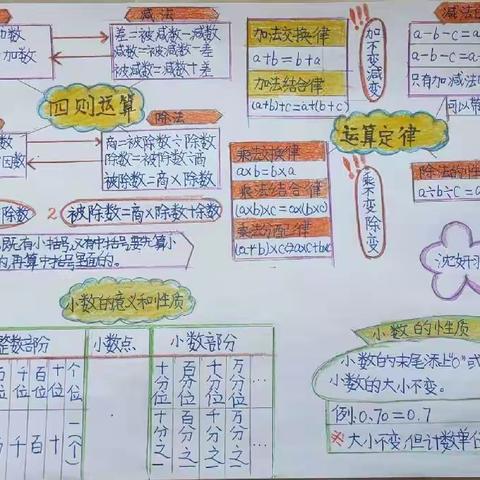 加数
加数
减法
差=被减数-减数
减数=被减数-差
被减数=减数+差
四则运算
因数
除法
商=被除数÷除数
除数=被除数÷商
被除数=商×除数
除数
2
被除数=商×除数+余数
既有小括号,又有中括号,要先算小
的,再算中括号里面的。
加法交换律
a+b=b+a
加法结合律
(a+b)+c=a+(b+c)
加不变减变
乘法交换律
a×b=b×a
乘法结合律
(a×b)×c=a×(b×c)
乘法分配律
(a+b)×c=a×c+b×c
乘不变除变
运算定律
减法的
a-b-c=a
a-b-c=a
只有加减法的
可以带
除法的性
a÷b÷c=a
沈妍
小数的意义和性质
整数部分
小数点
小数部分
万位
千位
百位
十位
个位
十分位
百分位
千分位
万分位
…
万
千
百
十
一(个)
.
十分之一
百分之一
千分之一
万分之一
…
小数的性质
小数的末尾添上"0"或
小数的大小不变。
例:0.70=0.7
※大小不变,但计数单位